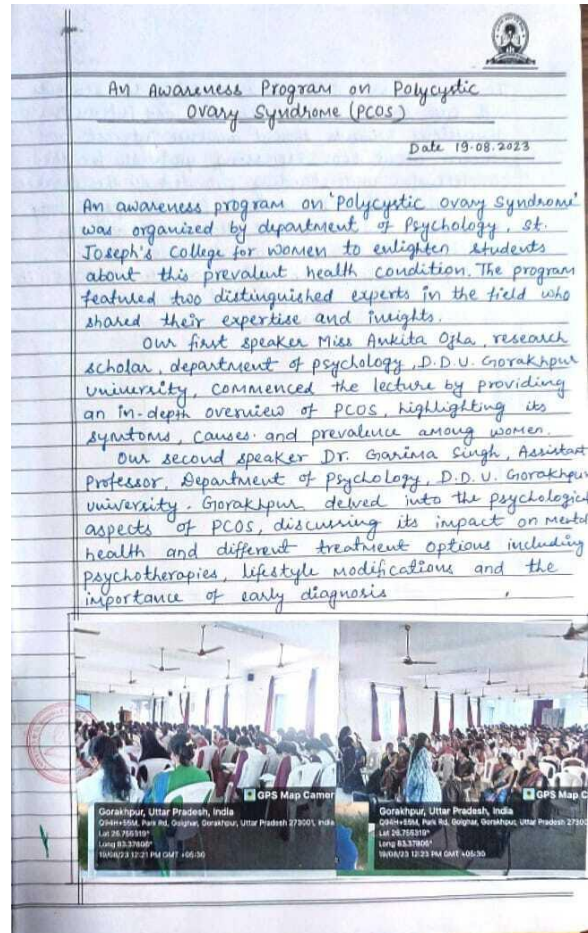 An Awareness Program on Polycystic
Ovary Syndrome (PCOS)
Date 19-08.2023
An awareness program on 'Polycystic Ovary Syndrome'
was organized by department of Psychology, St.
Joseph's College for women to enlighten students
about this prevalent health condition. The program
featured two distinguished experts in the field who
shared their expertise and insights.
Our first speaker Miss Ankita Ojha, research
scholar, department of psychology, D.D.U. Gorakhpur
University, commenced the lecture by providing
an in-depth overview of PCOS, highlighting its
symtoms, causes and prevalence among women.
Our second speaker Dr. Garima Singh, Assistant
Professor, Department of Psychology, D.D.U. Gorakhpur
University. Gorakhpur delved into the psychological
aspects of PCOS, discussing its impact on mental
health and different treatment options including
psychotherapies, lifestyle modifications and the
importance of early diagnosis
GPS Map Camer
Gorakhpur, Uttar Pradesh, India
Q94H+59M, Park Rd, Golghar, Gorakhpur, Uttar Pradesh 273001, India
Lat 26.755319°
Long 83.37806°
19/08/23 12:21 PM GMT +05:30
GPS Map C
Gorakhpur, Uttar Pradesh, India
Q94H+59M, Park Rd, Golghar, Gorakhpur, Uttar Pradesh 27300
Lat 26.755319°
Long 83.37806°
19/08/23 12:23 PM GMT +05:30